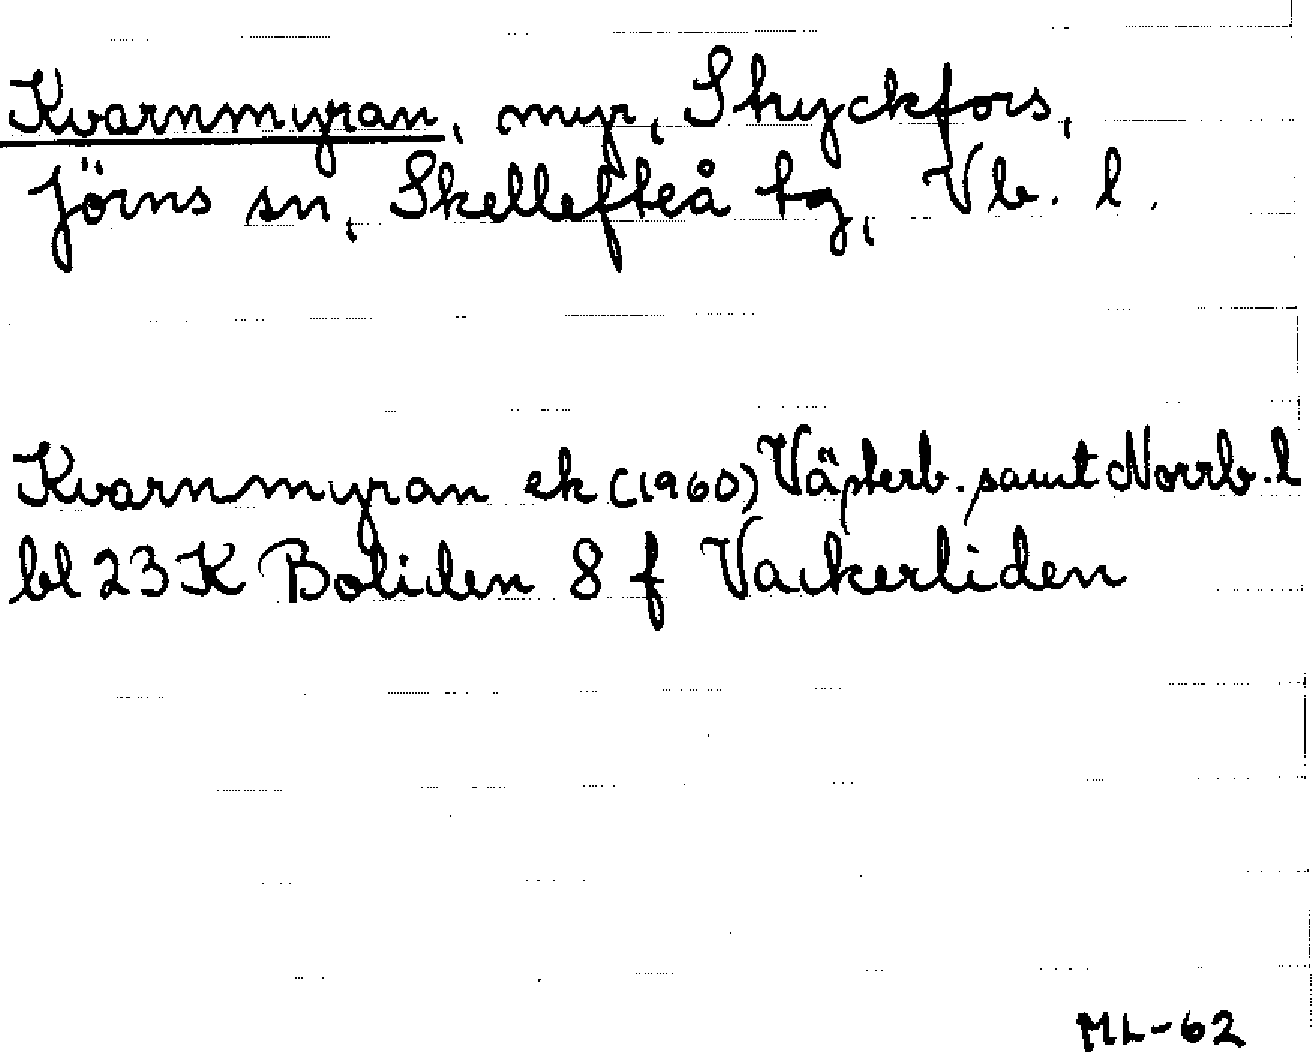 Kvarnmyran, myr, Stryckfors,
Jörns sn, Skellefteå tg, Vb. l.
Kvarnmyran ek (1960) Västerb. samt Norrb. l
bl 23 K Boliden 8 f Vackerliden
ML-62